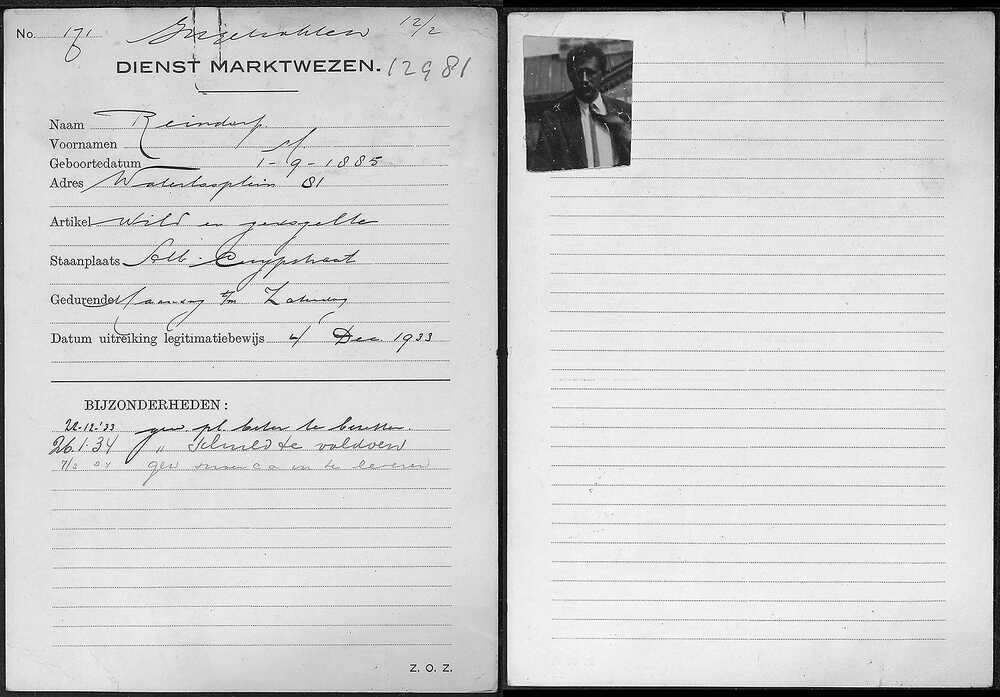 No. 171 Ingetrokken 12/2
DIENST MARKTWEZEN. 12981
Naam Reindorp.
Voornamen M.
Geboortedatum 1-9-1885
Adres Waterlooplein 81
Artikel Wild en gevogelte
Staanplaats Alb. Cuypstraat
Gedurende Maandag t/m Zaterdag
Datum uitreiking legitimatiebewijs 4 Dec. 1933
BIJZONDERHEDEN:
22-12-'33 gew. pl. beter te bezetten.
26.1.34 " schuld te voldoen
gew in te leveren
Z. O. Z.